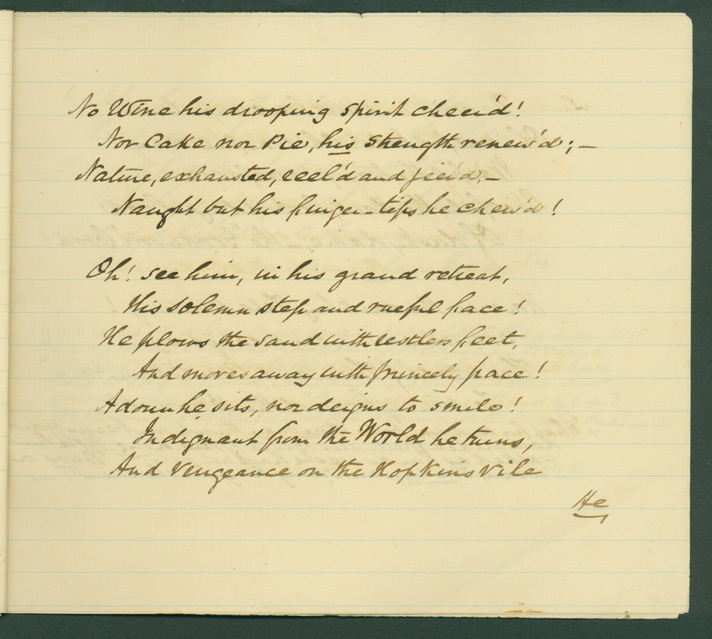 No Wine his drooping Spirit cheer'd!
Nor Cake nor Pie, his Strength renew'd; —
Nature, exhausted, reel'd and jeer'd, —
Naught but his finger-tips he chew'd!
Oh! see him, in his grand retreat,
His solemn step and rueful face!
He plows the sand with restless feet,
And moves away with princely pace!
Adown he sits, nor deigns to smile!
Indignant from the World he turns,
And Vengeance on the Hopkins vile
He